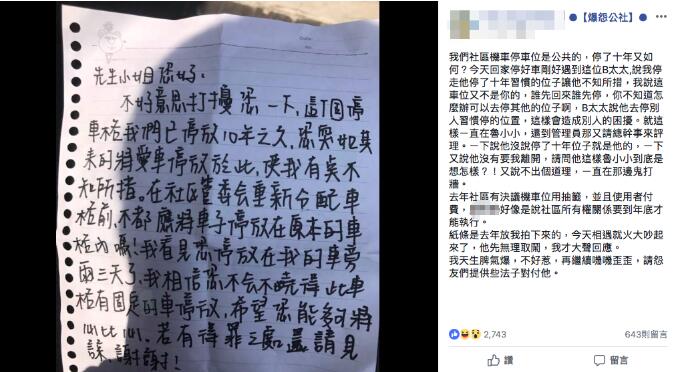 先生小姐您好:
不好意思打擾您一下,這個停
車格我們已停放10年之久,您突如其
來的將愛車停放於此,使我有臭不
知所措。在社區管委會重新分配車
格前,不都應將車子停放在原本的車
格內嗎!我看見您停放在我的車旁
兩三天了,我相信您不會不曉得此車
格有固定的車停放,希望您能夠將
若有得罪之處還請見
諒,謝謝!
【爆怨公社】
我們社區機車停車位是公共的,停了十年又如
何?今天回家停好車剛好遇到這位B太太,說我停
走他停了十年習慣的位子讓他不知所措,我說這
車位又不是你的,誰先回來誰先停,你不知道怎
麼辦可以去停其他的位子啊,B太太說他去停別
人習慣停的位置,這樣會造成別人的困擾。就這
樣一直在魯小小,還到管理員那又請總幹事來評
理。一下說他沒說停了十年位子就是他的,一下
又說他沒有要我離開,請問他這樣魯小小到底是
想怎樣?!又說不出個道理,一直在那邊鬼打
牆。
去年社區有決議機車位用抽籤,並且使用者付
費,好像是說社區所有權關係要到年底才
能執行。
紙條是去年放我拍下來的,今天相遇就火大吵起
來了,他先無理取鬧,我才大聲回應。
我天生脾氣爆,不好惹,再繼續嘰嘰歪歪,請怨
友們提供些法子對付他。
2,743
643則留言
讚
留言